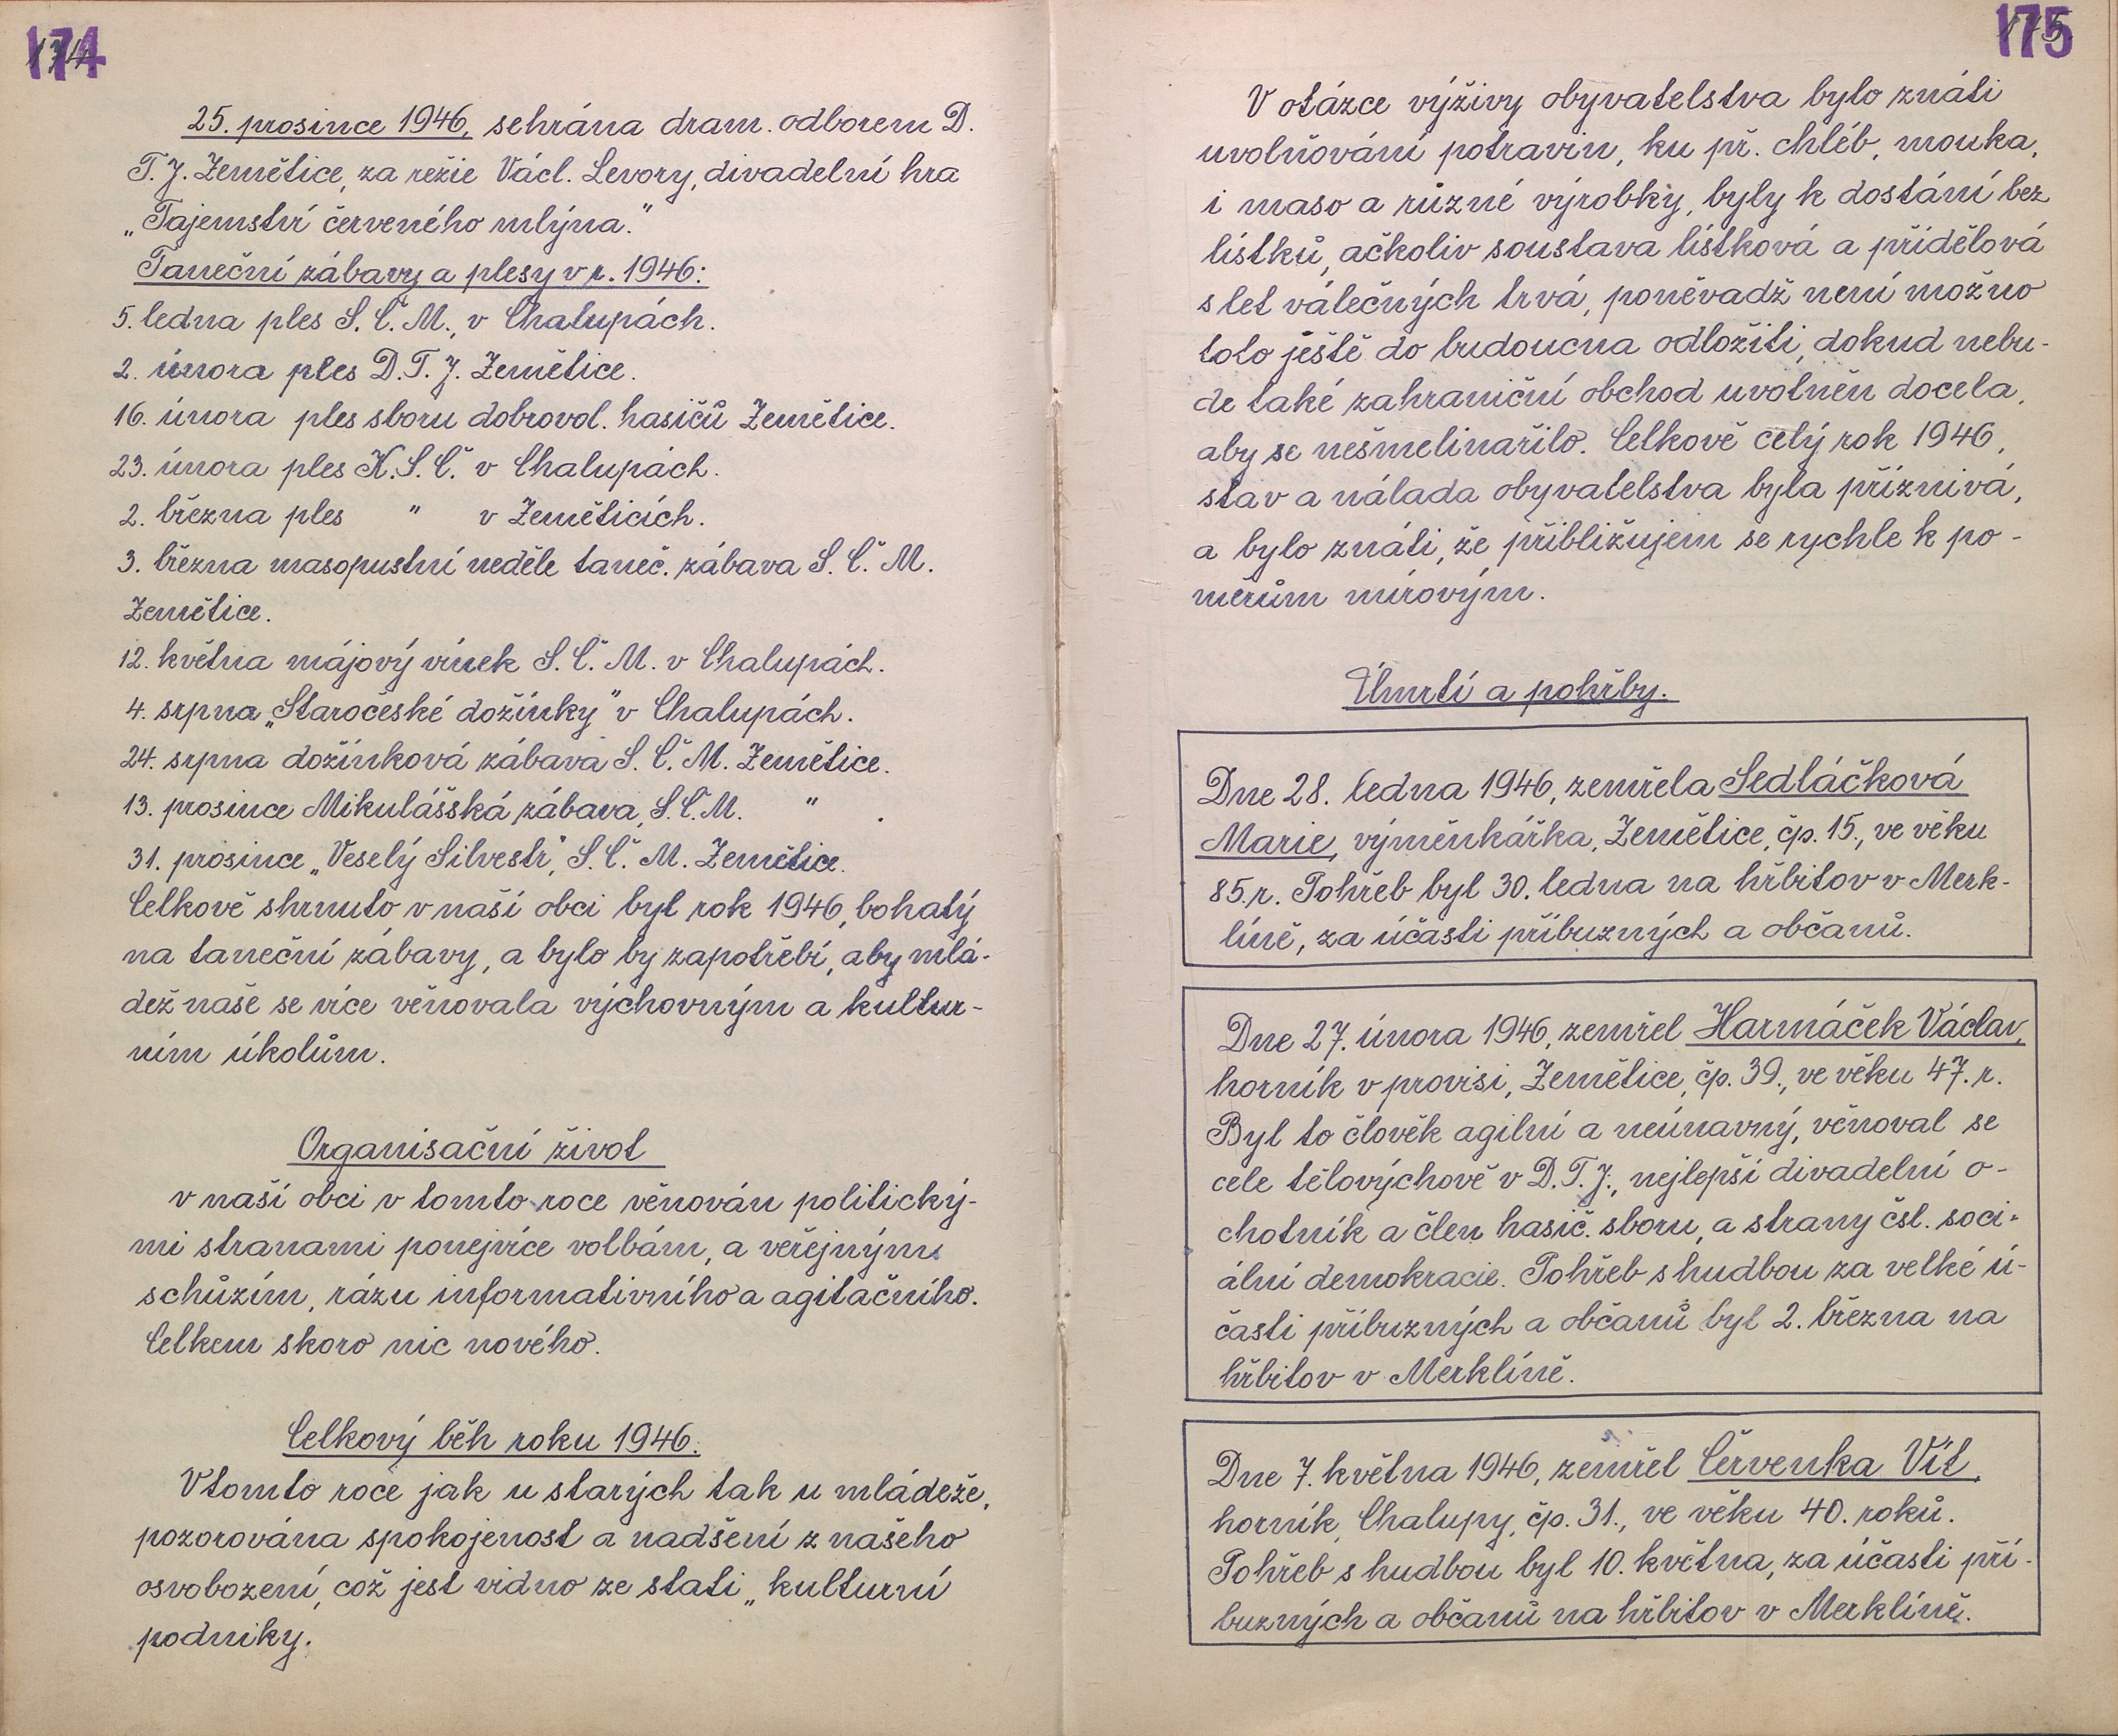 174
25. prosince 1946, sehrána dram. odborem D.
T. J. Zemětice, za režie Václ. Levory, divadelní hra
„Tajemství červeného mlýna."
Taneční zábavy a plesy v r. 1946:
5. ledna ples S. Č. M., v Chalupách.
2. února ples D. T. J. Zemětice.
16. února ples sboru dobrovol. hasičů Zemětice.
23. února ples K. S. Č. v Chalupách.
2. března ples " v Zeměticích.
3. března masopustní neděle taneč. zábava S. Č. M.
Zemětice.
12. května májový vínek S. Č. M. v Chalupách.
4. srpna „Staročeské dožínky" v Chalupách.
24. srpna dožínková zábava S. Č. M. Zemětice.
13. prosince Mikulášská zábava, S. Č. M. " .
31. prosince „Veselý Silvestr", S. Č. M. Zemětice.
Celkově shrnuto v naší obci byl rok 1946, bohatý
na taneční zábavy, a bylo by zapotřebí, aby mlá-
dež naše se více věnovala výchovným a kultur-
ním úkolům.
Organisační život
v naší obci v tomto roce věnován politický-
mi stranami ponejvíce volbám, a veřejným
schůzím, rázu informativního a agitačního.
Celkem skoro nic nového.
Celkový běh roku 1946.
V tomto roce jak u starých tak u mládeže,
pozorována spokojenost a nadšení z našeho
osvobození, což jest vidno ze stati „kulturní
podniky.
175
V otázce výživy obyvatelstva bylo znáti
uvolňování potravin, ku př. chléb, mouka,
i maso a různé výrobky, byly k dostání bez
lístků, ačkoliv soustava lístková a přídělová
s let válečných trvá, poněvadž není možno
toto ještě do budoucna odložiti, dokud nebu-
de také zahraniční obchod uvolněn docela,
aby se nešmelinařilo. Celkově celý rok 1946,
stav a nálada obyvatelstva byla příznivá,
a bylo znáti, že přibližujem se rychle k po-
měrům mírovým.
Úmrtí a pohřby.
Dne 28. ledna 1946, zemřela Sedláčková
Marie, výměnkářka, Zemětice, čp. 15., ve věku
85. r. Pohřeb byl 30. ledna na hřbitov v Merk-
líně, za účasti příbuzných a občanů.
Dne 27. února 1946, zemřel Harmáček Václav,
horník v provisi, Zemětice, čp. 39., ve věku 47. r.
Byl to člověk agilní a neúnavný, věnoval se
cele tělovýchově v D. T. J., nejlepší divadelní o-
chotník a člen hasič. sboru, a strany čsl. soci-
ální demokracie. Pohřeb s hudbou za velké ú-
časti příbuzných a občanů byl 2. března na
hřbitov v Merklíně.
Dne 7. května 1946, zemřel Červenka Vít,
horník, Chalupy, čp. 31., ve věku 40. roků.
Pohřeb s hudbou byl 10. května, za účasti pří-
buzných a občanů na hřbitov v Merklíně.